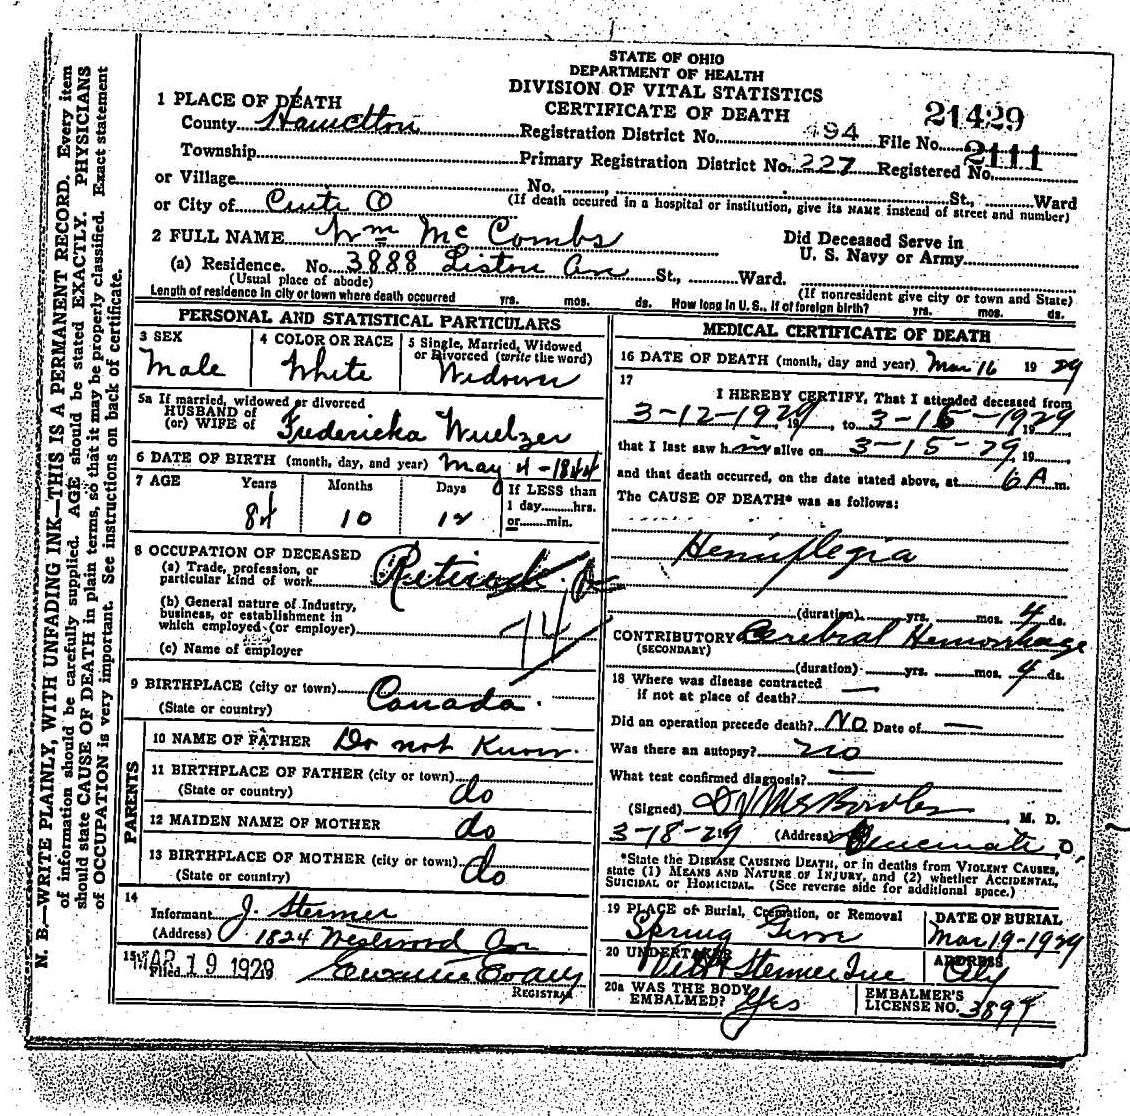 STATE OF OHIO
DEPARTMENT OF HEALTH
DIVISION OF VITAL STATISTICS
CERTIFICATE OF DEATH
1 PLACE OF DEATH
County Hamilton
Registration District No. 494 File No. 21429
Township
Primary Registration District No. 227 Registered No. 2111
or Village
No. St., Ward
or City of Cinti O
(If death occured in a hospital or institution, give its NAME instead of street and number)
2 FULL NAME Wm McCombs
Did Deceased Serve in
U. S. Navy or Army
(a) Residence. No. 3888 Liston Av St., Ward.
(Usual place of abode)
(If nonresident give city or town and State)
Length of residence in city or town where death occurred yrs. mos. ds. How long in U.S., if of foreign birth? yrs. mos. ds.
PERSONAL AND STATISTICAL PARTICULARS
3 SEX
Male
4 COLOR OR RACE
White
5 Single, Married, Widowed
or Divorced (write the word)
Widower
5a If married, widowed or divorced
HUSBAND of
(or) WIFE of Fredericka Wuelzer
6 DATE OF BIRTH (month, day, and year) May 4-1844
7 AGE Years Months Days
84 10 12
If LESS than
1 day hrs.
or min.
8 OCCUPATION OF DECEASED
(a) Trade, profession, or
particular kind of work Retired
(b) General nature of Industry,
business, or establishment in
which employed (or employer)
(c) Name of employer
9 BIRTHPLACE (city or town) Canada.
(State or country)
PARENTS
10 NAME OF FATHER Do not Know.
11 BIRTHPLACE OF FATHER (city or town)
(State or country) do
12 MAIDEN NAME OF MOTHER do
13 BIRTHPLACE OF MOTHER (city or town)
(State or country) do
14
Informant J. Stermer
(Address) 1824 Westwood Av
15 Filed MAR 19 1929
REGISTRAR
MEDICAL CERTIFICATE OF DEATH
16 DATE OF DEATH (month, day and year) Mar 16 1929
17
I HEREBY CERTIFY, That I attended deceased from
3-12-1929 19 , to 3-15-1929 19
that I last saw him alive on 3-15-29 19 ,
and that death occurred, on the date stated above, at 6A m.
The CAUSE OF DEATH* was as follows:
Hemiplegia
(duration) yrs. mos. 4 ds.
CONTRIBUTORY Cerebral Hemorrhage
(SECONDARY)
(duration) yrs. mos. 4 ds.
18 Where was disease contracted
if not at place of death? —
Did an operation precede death? No Date of —
Was there an autopsy? no
What test confirmed diagnosis? —
(Signed) , M. D.
3-18-29 19 (Address) Cincinnati, O.
*State the DISEASE CAUSING DEATH, or in deaths from VIOLENT CAUSES,
state (1) MEANS AND NATURE OF INJURY, and (2) whether ACCIDENTAL,
SUICIDAL or HOMICIDAL. (See reverse side for additional space.)
19 PLACE of Burial, Cremation, or Removal
Spring Grove
DATE OF BURIAL
Mar 19-1929
20 UNDERTAKER
Vitt & Stermer Inc
ADDRESS
City
20a WAS THE BODY
EMBALMED? Yes
EMBALMER'S
LICENSE NO. 3899
N. B.—WRITE PLAINLY, WITH UNFADING INK—THIS IS A PERMANENT RECORD. Every item
of information should be carefully supplied. AGE should be stated EXACTLY. PHYSICIANS
should state CAUSE OF DEATH in plain terms, so that it may be properly classified. Exact statement
of OCCUPATION is very important. See instructions on back of certificate.